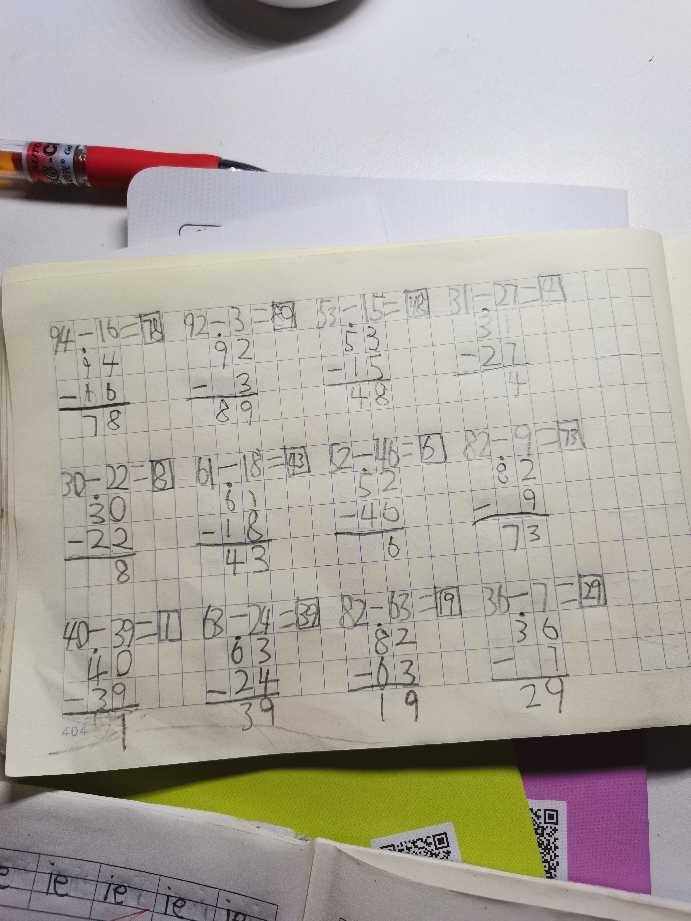 94-16=78 92-3=89 53-15=48 31-27=4
94 92 53 31
-16 -3 -15 -27
78 89 48 4
30-22=8 61-18=43 52-46=6 82-9=73
30 61 52 82
-22 -18 -46 -9
8 43 6 73
40-39=1 63-24=39 82-63=19 36-7=29
40 63 82 36
-39 -24 -63 -7
1 39 19 29
404
ie ie ie